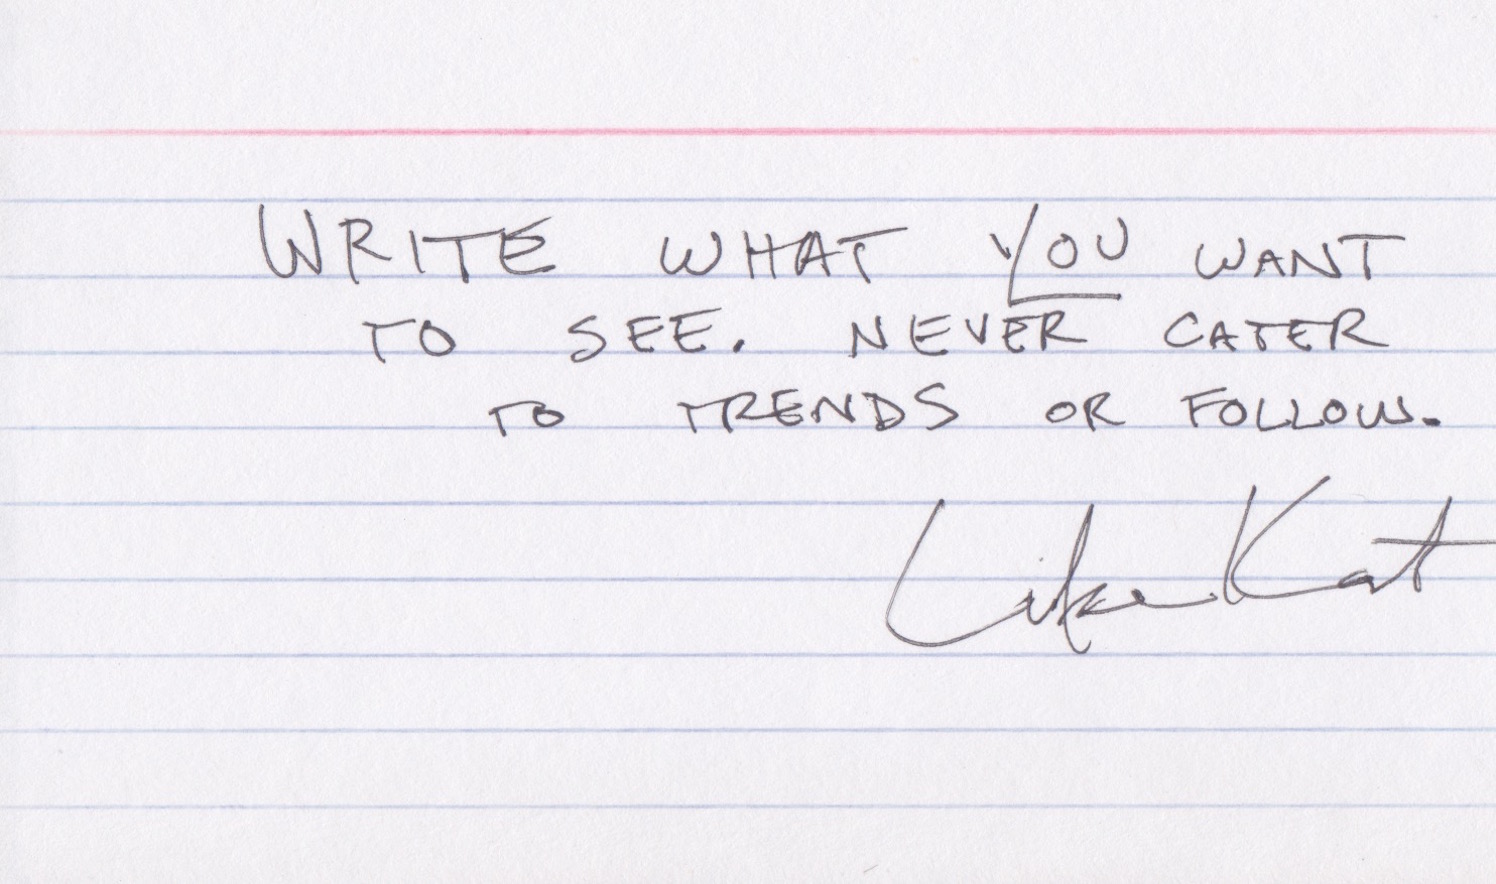 WRITE WHAT YOU WANT
TO SEE. NEVER CATER
TO TRENDS OR FOLLOW.